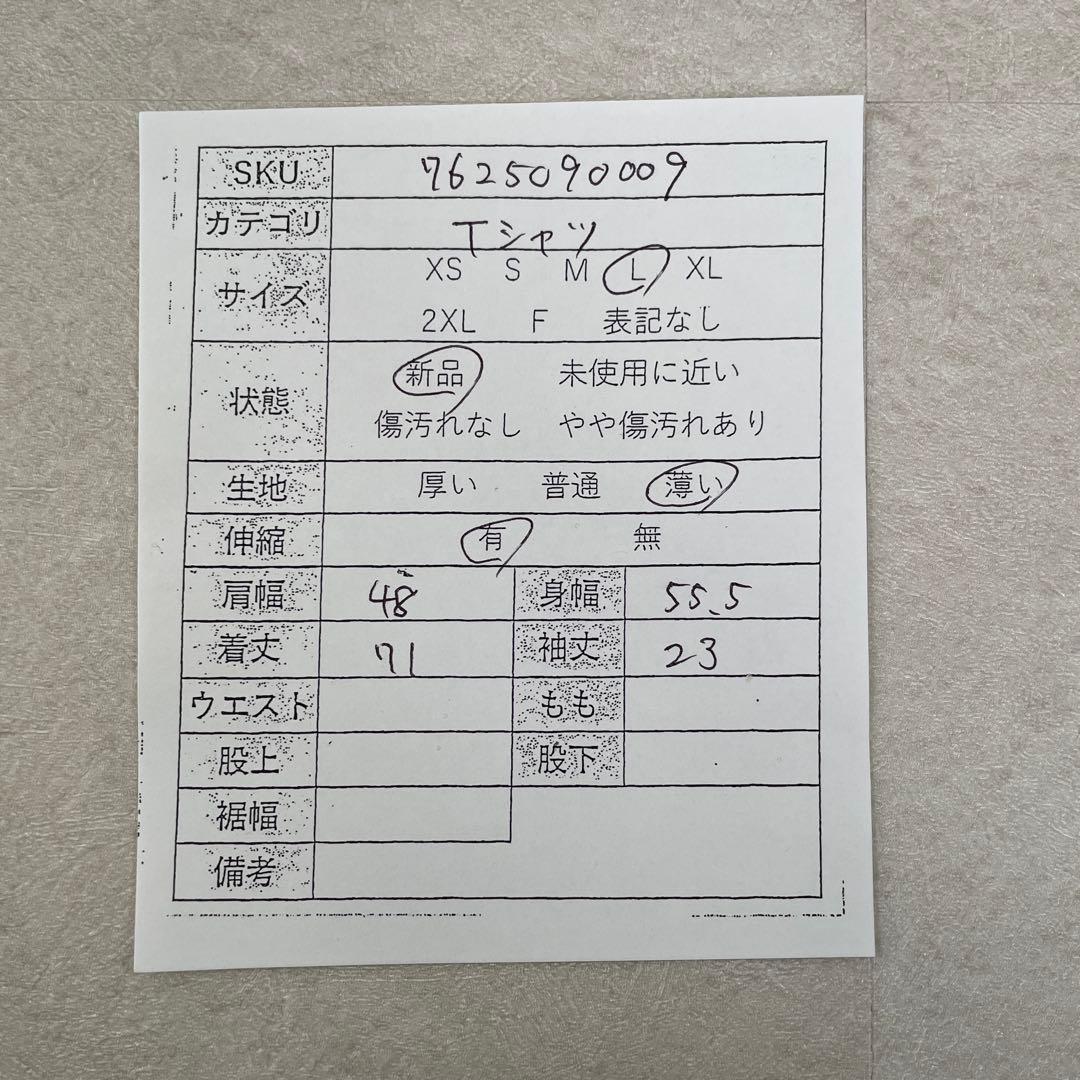 SKU 7625090009
カテゴリ Tシャツ
サイズ XS S M L XL
2XL F 表記なし
状態 新品 未使用に近い
傷汚れなし やや傷汚れあり
生地 厚い 普通 薄い
伸縮 有 無
肩幅 48 身幅 55.5
着丈 71 袖丈 23
ウエスト もも
股上 股下
裾幅
備考